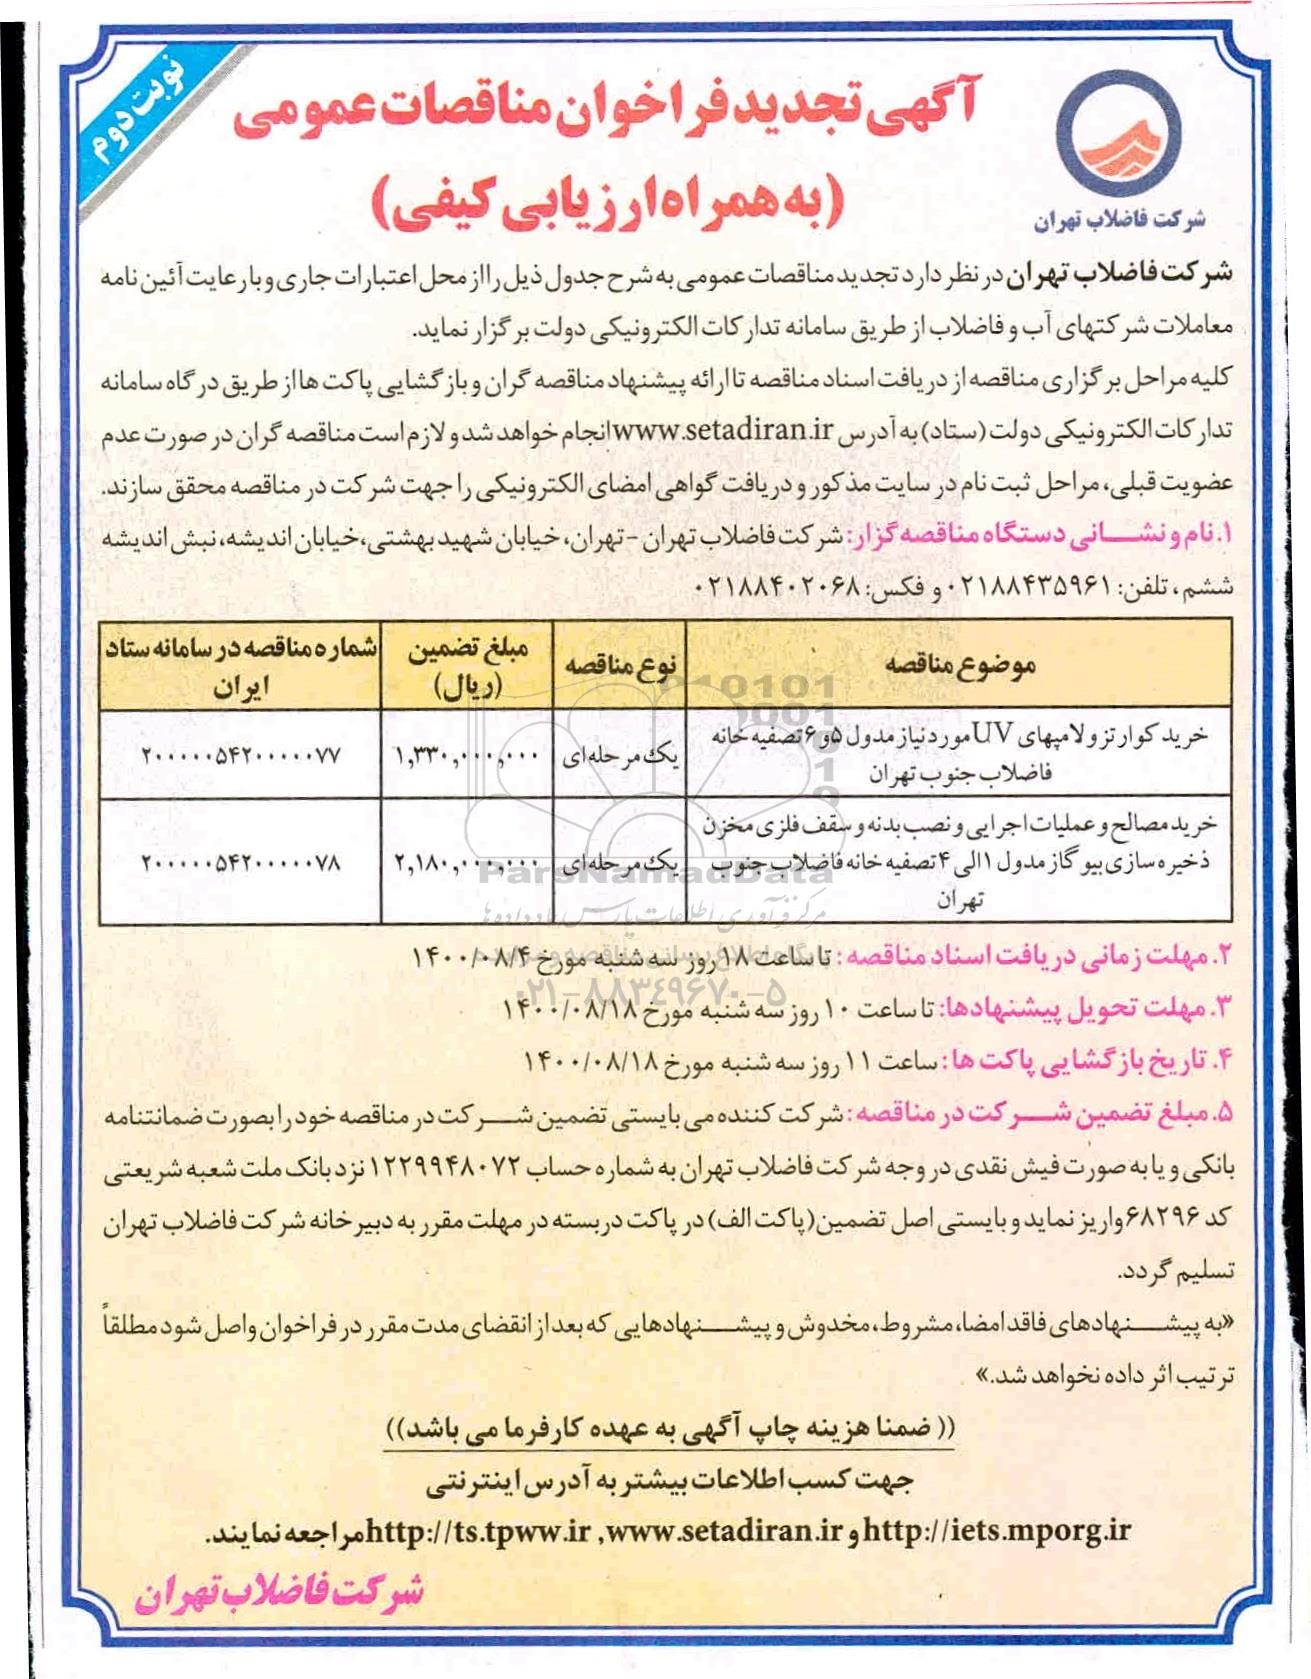 نوبت دوم
آگهی تجدید فراخوان مناقصات عمومی
(به همراه ارزیابی کیفی)
شرکت فاضلاب تهران
شرکت فاضلاب تهران در نظر دارد تجدید مناقصات عمومی به شرح جدول ذیل را از محل اعتبارات جاری و با رعایت آئین نامه
معاملات شرکتهای آب و فاضلاب از طریق سامانه تدارکات الکترونیکی دولت برگزار نماید.
کلیه مراحل برگزاری مناقصه از دریافت اسناد مناقصه تا ارائه پیشنهاد مناقصه گران و بازگشایی پاکت ها از طریق درگاه سامانه
تدارکات الکترونیکی دولت (ستاد) به آدرس www.setadiran.ir انجام خواهد شد و لازم است مناقصه گران در صورت عدم
عضویت قبلی، مراحل ثبت نام در سایت مذکور و دریافت گواهی امضای الکترونیکی را جهت شرکت در مناقصه محقق سازند.
۱. نام و نشانی دستگاه مناقصه گزار: شرکت فاضلاب تهران -تهران، خیابان شهید بهشتی، خیابان اندیشه، نبش اندیشه
ششم، تلفن: ۰۲۱۸۸۴۳۵۹۶۱ و فکس: ۰۲۱۸۸۴۰۲۰۶۸
موضوع مناقصه | نوع مناقصه | مبلغ تضمین (ریال) | شماره مناقصه در سامانه ستاد ایران
خرید کوارتز و لامپهای UV مورد نیاز مدول ۵ و ۶ تصفیه خانه
فاضلاب جنوب تهران | یک مرحله ای | ۱,۳۳۰,۰۰۰,۰۰۰ | ۲۰۰۰۰۰۵۴۲۰۰۰۰۰۷۷
خرید مصالح و عملیات اجرایی و نصب بدنه و سقف فلزی مخزن
ذخیره سازی بیو گاز مدول ۱ الی ۴ تصفیه خانه فاضلاب جنوب
تهران | یک مرحله ای | ۲,۱۸۰,۰۰۰,۰۰۰ | ۲۰۰۰۰۰۵۴۲۰۰۰۰۰۷۸
ParsNamadData
مرکز فرآوری اطلاعات پارس نماد داده ها
۰۲۱-۸۸۳۴۹۶۷۰-۵
۲. مهلت زمانی دریافت اسناد مناقصه: تا ساعت ۱۸ روز سه شنبه مورخ ۱۴۰۰/۰۸/۴
۳. مهلت تحویل پیشنهادها: تا ساعت ۱۰ روز سه شنبه مورخ ۱۴۰۰/۰۸/۱۸
۴. تاریخ بازگشایی پاکت ها: ساعت ۱۱ روز سه شنبه مورخ ۱۴۰۰/۰۸/۱۸
۵. مبلغ تضمین شرکت در مناقصه: شرکت کننده می بایستی تضمین شرکت در مناقصه خود را بصورت ضمانتنامه
بانکی و یا به صورت فیش نقدی در وجه شرکت فاضلاب تهران به شماره حساب ۱۲۲۹۹۴۸۰۷۲ نزد بانک ملت شعبه شریعتی
کد ۶۸۲۹۶ واریز نماید و بایستی اصل تضمین (پاکت الف) در پاکت دربسته در مهلت مقرر به دبیرخانه شرکت فاضلاب تهران
تسلیم گردد.
«به پیشنهادهای فاقد امضا، مشروط، مخدوش و پیشنهادهایی که بعد از انقضای مدت مقرر در فراخوان واصل شود مطلقاً
ترتیب اثر داده نخواهد شد.»
(( ضمنا هزینه چاپ آگهی به عهده کارفرما می باشد))
جهت کسب اطلاعات بیشتر به آدرس اینترنتی
http://iets.mporg.ir و http://ts.tpww.ir ,www.setadiran.ir مراجعه نمایند.
شرکت فاضلاب تهران